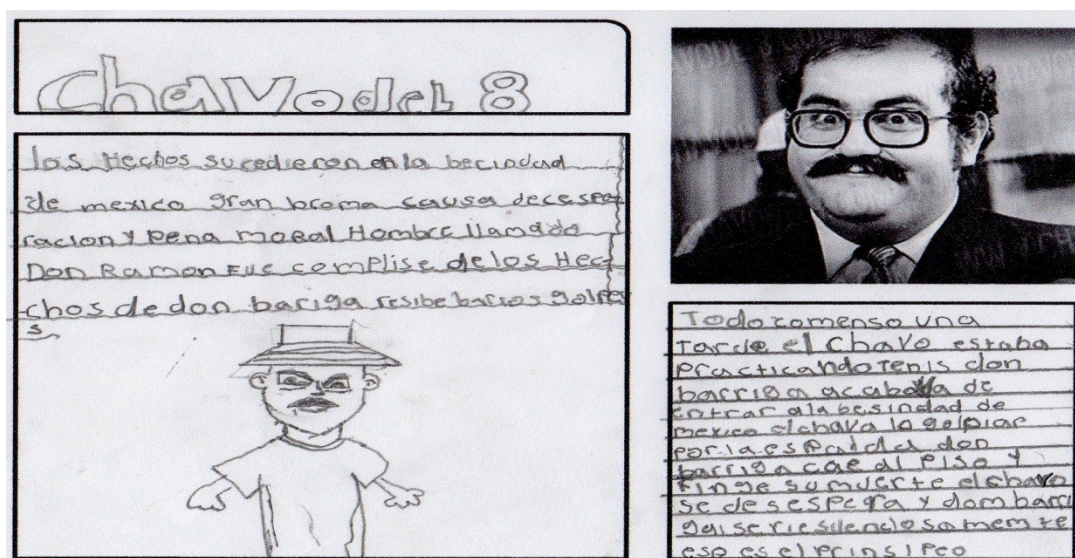 Chavodel 8
los Hechos sucedieron en la becindad
de mexico gran broma causa decespe
racion y pena moral Hombre llamado
Don Ramon Fue complise de los Hec
chos de don bariga resibe barios golpes
s.
Todo comenso una
Tarde el Chavo estaba
Practicando Tenis don
barriga acababa de
entrar a la besindad de
mexico el chavo lo golpiar
por la espalda don
barriga cae al piso y
Finge su muerte el chavo
se desespera y dom barri
ga se rie silenciosamemte
eso es el prinsipeo